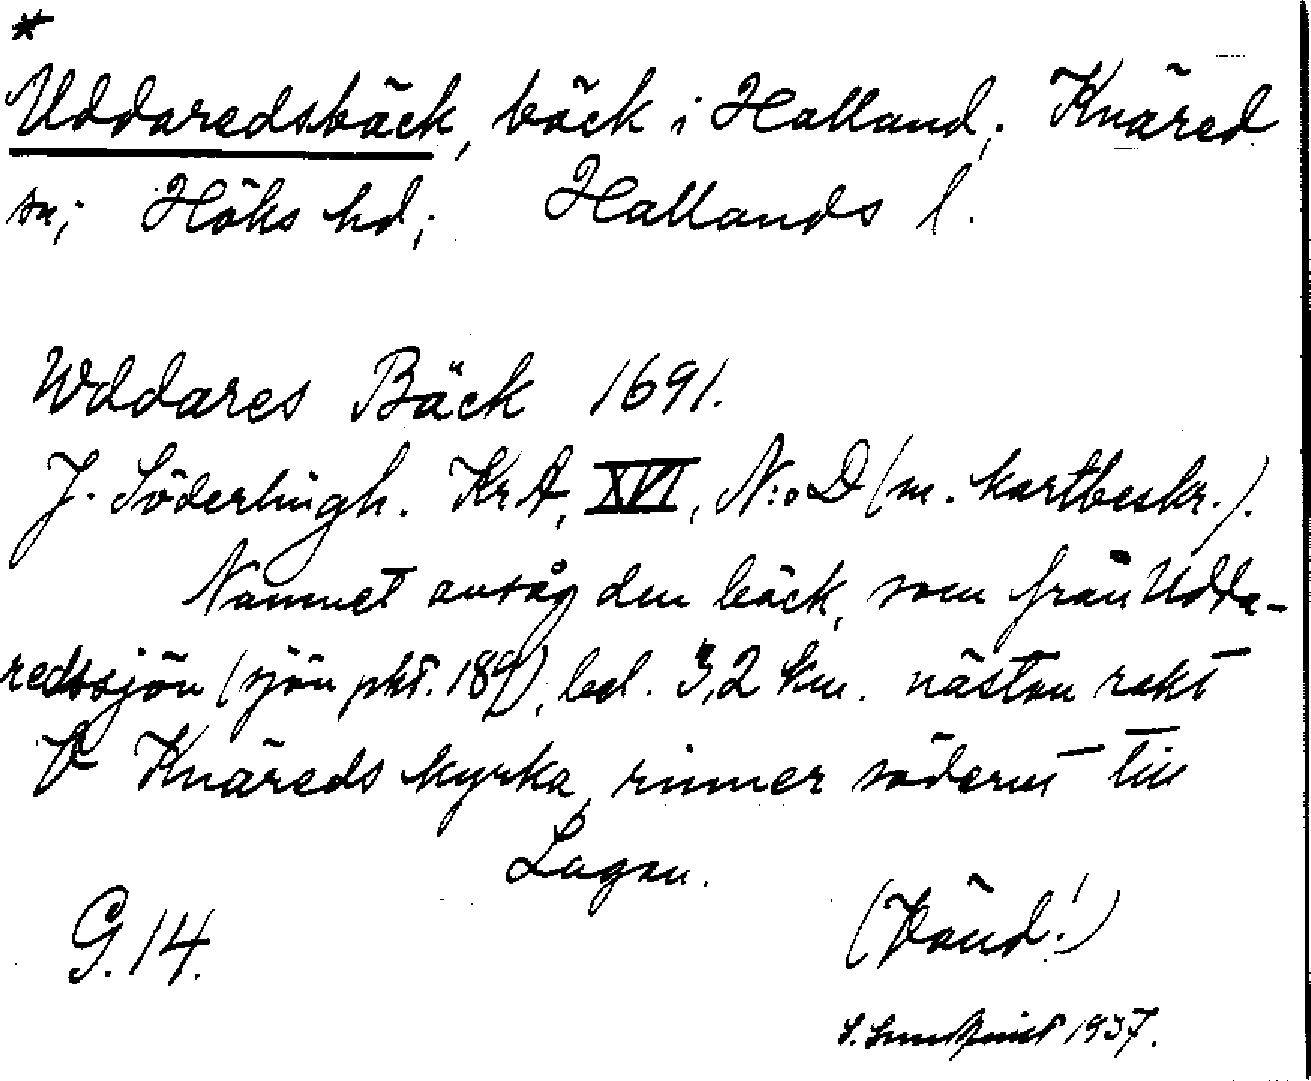 *
Uddaredsbäck, bäck i Halland; Knäred
sn; Höks hd; Hallands l.
Wddares Bäck 1691.
J. Söderlingh. KrA, XVI, N:o D (m. kartbeskr.).
Namnet avsåg den bäck, som från Udda-
redssjön (sjön pkt. 189), bel. 3,2 km. nästan rakt
V Knäreds kyrka, rinner söderut till
Lagan.
G. 14.
(Vänd!)
S. Sundqvist 1937.